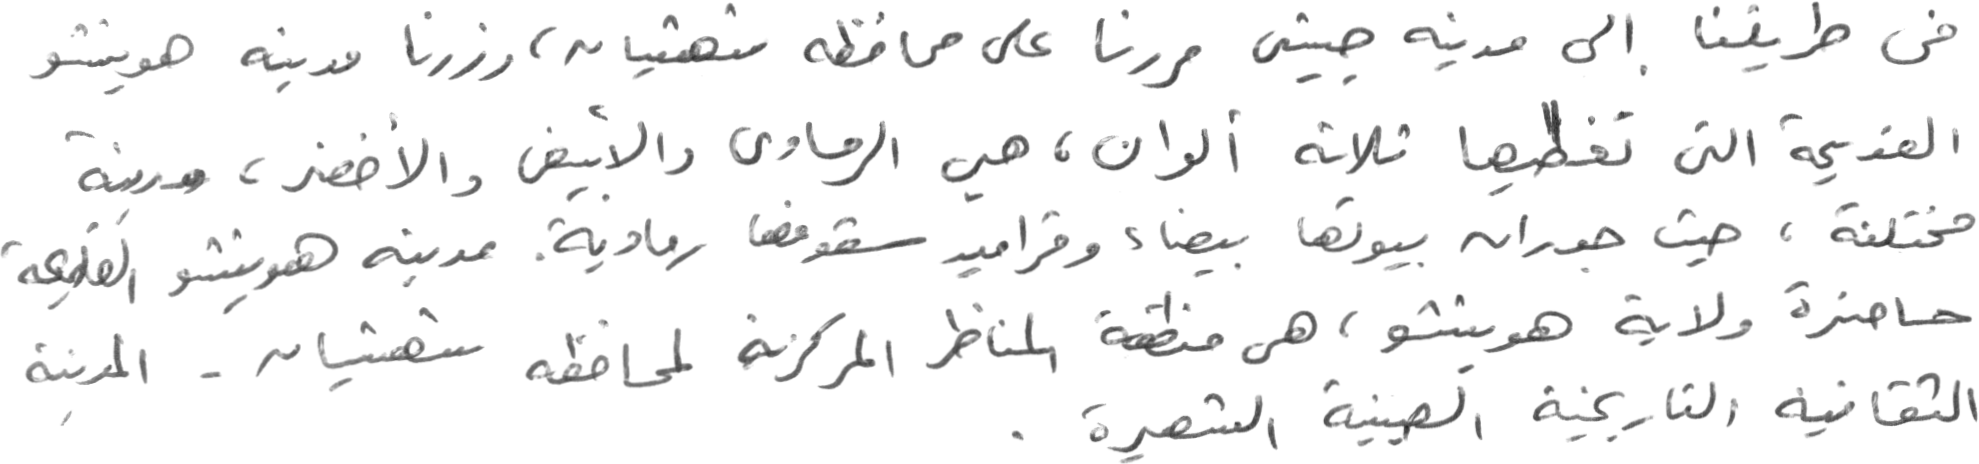 في طريقنا إلى مدينة جيشي مررنا على محافظة شهشيان، وزرنا مدينة هويتشو
القديمة التي تغطيها ثلاثة ألوان، هي الرمادي والأبيض والأخضر، مدينة
مختلفة، حيث جدران بيوتها بيضاء وقراميد سقوفها رمادية. مدينة هويتشو القديمة
حاضرة ولاية هويتشو، هي منطقة المناظر المركزية لمحافظة شهشيان - المدينة
الثقافية التاريخية الصينية الشهيرة.